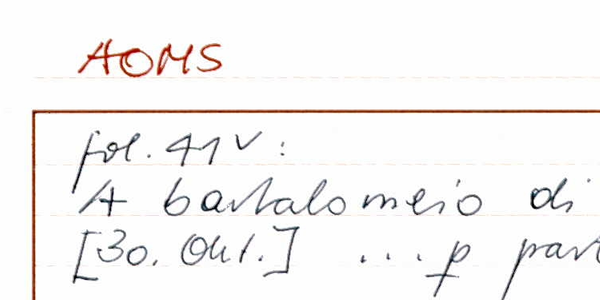 AOMS
fol. 41v:
A bartalomeio di
[30. Okt.] ... p part